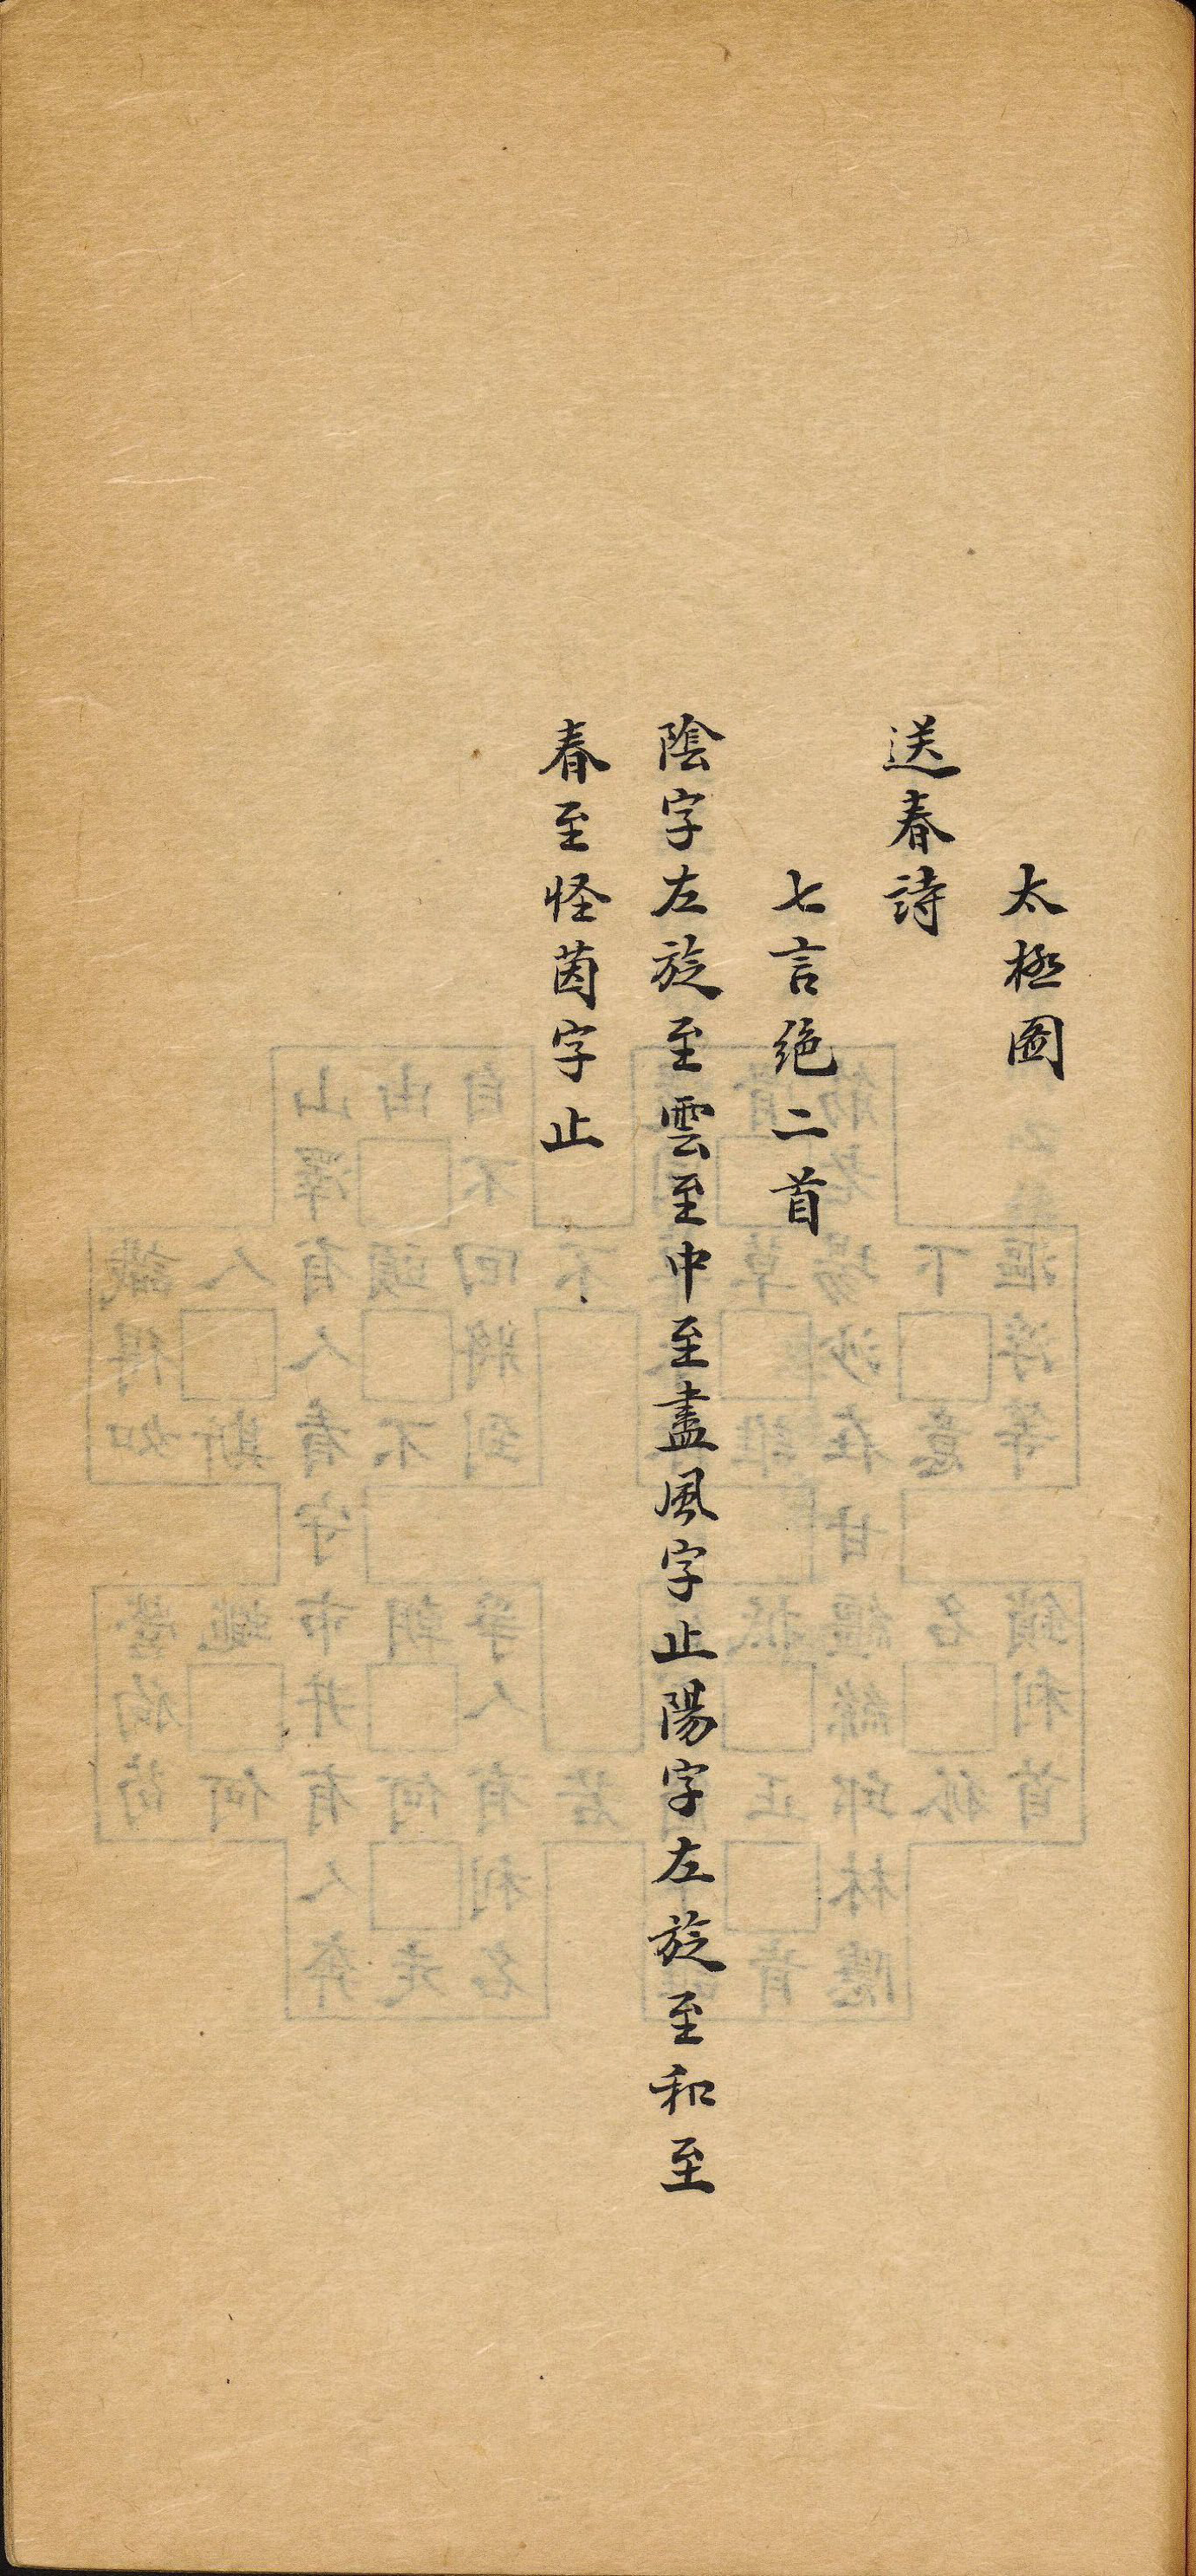 太極圖
送春詩
七言絕二首
陰字左旋至雲至中至盡風字止陽字左旋至和至
春至怪茵字止